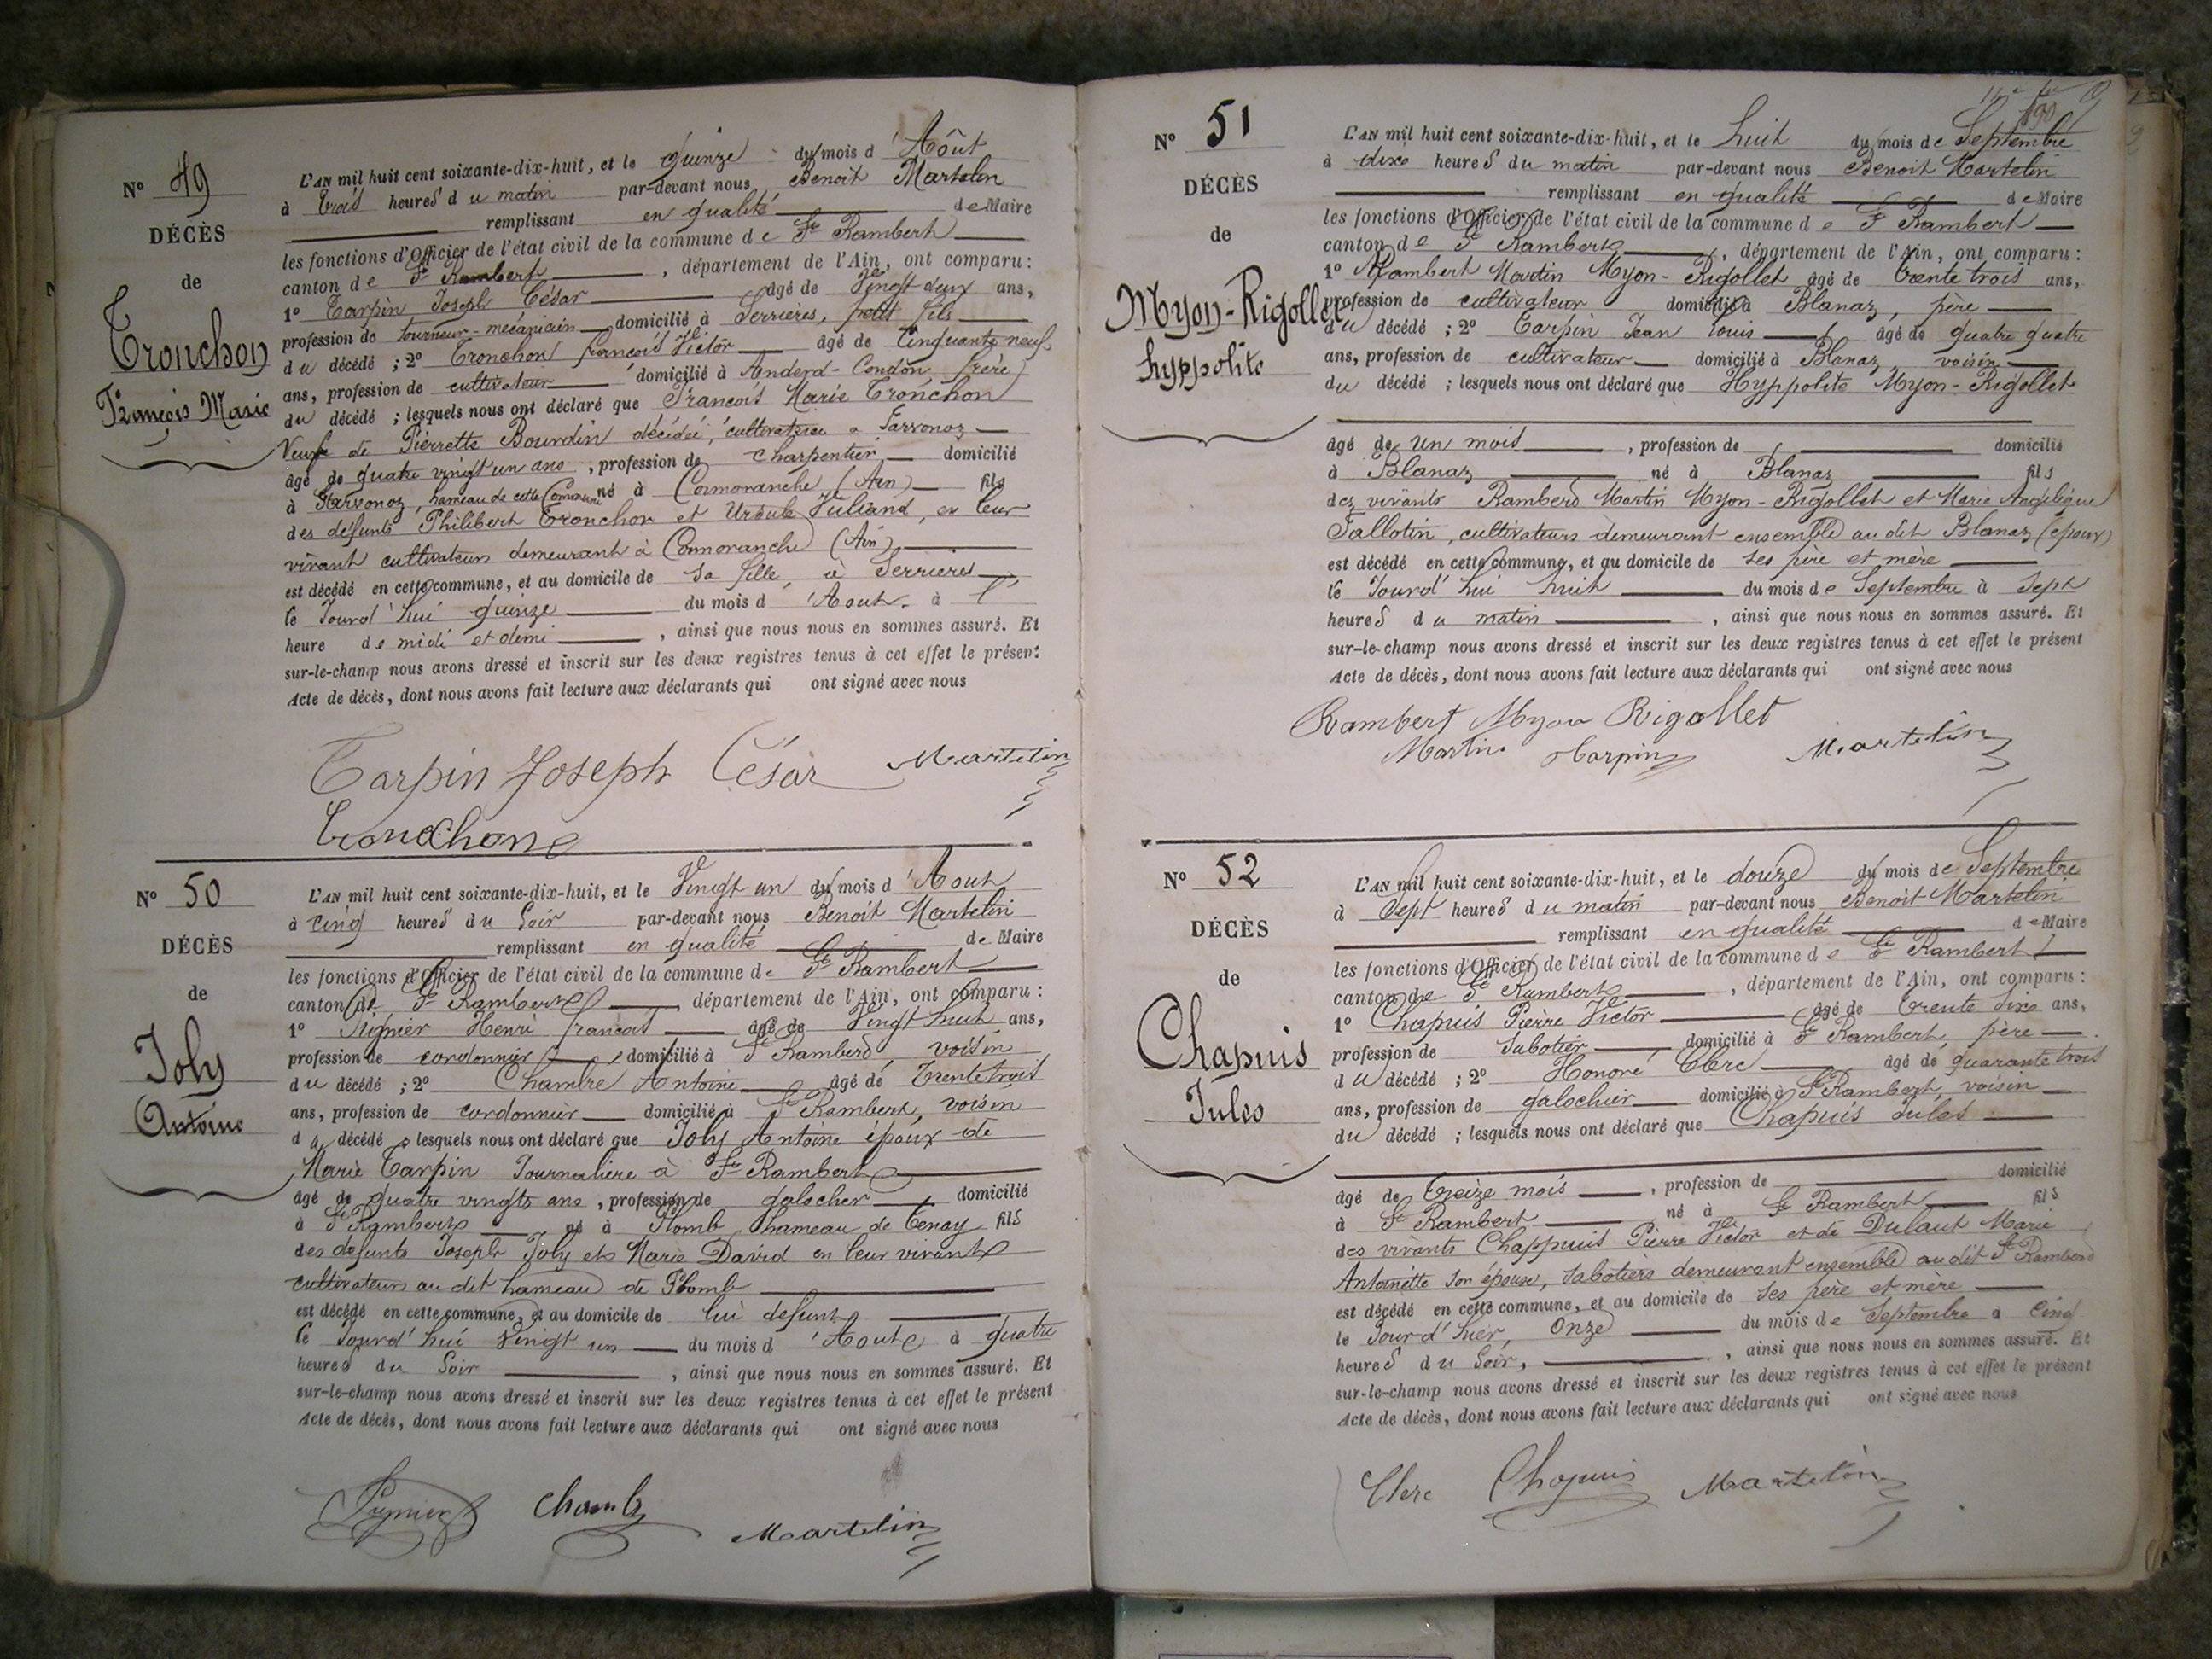 N° 49
DÉCÈS
de
Tronchon
François Marie
L'AN mil huit cent soixante-dix-huit, et le quinze du mois d'Aôut
à trois heures du matin par-devant nous Benoit Martelin
remplissant en qualité de Maire
les fonctions d'Officier de l'état civil de la commune de St Rambert
canton de St Rambert, département de l'Ain, ont comparu :
1° Tarpin Joseph César âgé de Vingt deux ans,
profession de tourneur-mécanicien domicilié à Serrières, petit fils
du décédé ; 2° Tronchon françois Victor âgé de Cinquante neuf
ans, profession de cultivateur domicilié à Anderd-Condon frère
du décédé ; lesquels nous ont déclaré que François Marie Tronchon
Veuf de Pierrette Bourdin décédée, cultivatrice à Javronoz
âgé de quatre vingt un ans, profession de charpentier domicilié
à Javronoz, hameau de cette Commune né à Cormoranche (Ain) fils
des défunts Philibert Tronchon et Ursule Juliand, en leur
vivant cultivateurs demeurant à Cormoranche (Ain)
est décédé en cette commune, et au domicile de sa fille, à Serrieres
le Jourd'hui quinze du mois d'Aout à l'
heure de midi et demi, ainsi que nous nous en sommes assuré. Et
sur-le-champ nous avons dressé et inscrit sur les deux registres tenus à cet effet le présent
Acte de décès, dont nous avons fait lecture aux déclarants qui ont signé avec nous
Tarpin Joseph César Martelin
Tronchon
N° 50
DÉCÈS
de
Joly
Antoine
L'AN mil huit cent soixante-dix-huit, et le Vingt un du mois d'Aout
à cinq heures du Soir par-devant nous Benoit Martelin
remplissant en qualité de Maire
les fonctions d'Officier de l'état civil de la commune de St Rambert
canton de St Rambert, département de l'Ain, ont comparu :
1° Henri françois âgé de Vingt huit ans,
profession de cordonnier domicilié à St Rambert, voisin
du décédé ; 2° Chambre Antoine âgé de Trente trois
ans, profession de cordonnier domicilié à St Rambert, voisin
du décédé ; lesquels nous ont déclaré que Joly Antoine époux de
Marie Tarpin Journalière à St Rambert
âgé de quatre vingts ans, profession de galocher domicilié
à St Rambert né à Plomb, hameau de Tenay fils
des défunts Joseph Joly et Marie David en leur vivant
cultivateurs au dit hameau de Plomb
est décédé en cette commune, et au domicile de lui defunt
le Jourd'hui Vingt un du mois d'Aout à quatre
heures du Soir, ainsi que nous nous en sommes assuré. Et
sur-le-champ nous avons dressé et inscrit sur les deux registres tenus à cet effet le présent
Acte de décès, dont nous avons fait lecture aux déclarants qui ont signé avec nous
Martelin
N° 51
DÉCÈS
de
Myon-Rigollet
hyppolite
L'AN mil huit cent soixante-dix-huit, et le huit du mois de Septembre
à dix heures du matin par-devant nous Benoit Martelin
remplissant en qualité de Maire
les fonctions d'Officier de l'état civil de la commune de St Rambert
canton de St Rambert, département de l'Ain, ont comparu :
1° Rambert Martin Myon-Rigollet âgé de trente trois ans,
profession de cultivateur domicilié à Blanaz, père
du décédé ; 2° Tarpin Jean Louis âgé de quatre quatre
ans, profession de cultivateur domicilié à Blanaz voisin
du décédé ; lesquels nous ont déclaré que Hyppolite Myon-Rigollet
âgé de un mois, profession de domicilié
à Blanaz né à Blanaz fils
des vivants Rambert Martin Myon-Rigollet et Marie Angelique
Jallotin, cultivateurs demeurant ensemble au dit Blanaz (epoux)
est décédé en cette commune, et au domicile de ses père et mère
le Jourd'hui huit du mois de Septembre à Sept
heures du matin, ainsi que nous nous en sommes assuré. Et
sur-le-champ nous avons dressé et inscrit sur les deux registres tenus à cet effet le présent
Acte de décès, dont nous avons fait lecture aux déclarants qui ont signé avec nous
Rambert Myon Rigollet
Martin Tarpin Martelin
N° 52
DÉCÈS
de
Chapuis
Jules
L'AN mil huit cent soixante-dix-huit, et le douze du mois de Septembre
à Sept heures du matin par-devant nous Benoit Martelin
remplissant en qualité de Maire
les fonctions d'Officier de l'état civil de la commune de St Rambert
canton de St Rambert, département de l'Ain, ont comparu :
1° Chapuis Pierre Victor âgé de trente six ans,
profession de Sabotier domicilié à St Rambert, père
du décédé ; 2° Honoré Clerc âgé de quarante trois
ans, profession de galochier domicilié à St Rambert, voisin
du décédé ; lesquels nous ont déclaré que Chapuis Jules
âgé de treize mois, profession de domicilié
à St Rambert né à St Rambert fils
des vivants Chappuis Pierre Victor et de Dulaut Marie
Antoinette son épouse, sabotiers demeurant ensemble au dit St Rambert
est décédé en cette commune, et au domicile de ses père et mère
le Jour d'hier, onze du mois de Septembre à Cinq
heures du Soir, ainsi que nous nous en sommes assuré. Et
sur-le-champ nous avons dressé et inscrit sur les deux registres tenus à cet effet le présent
Acte de décès, dont nous avons fait lecture aux déclarants qui ont signé avec nous
Clerc Chapuis Martelin